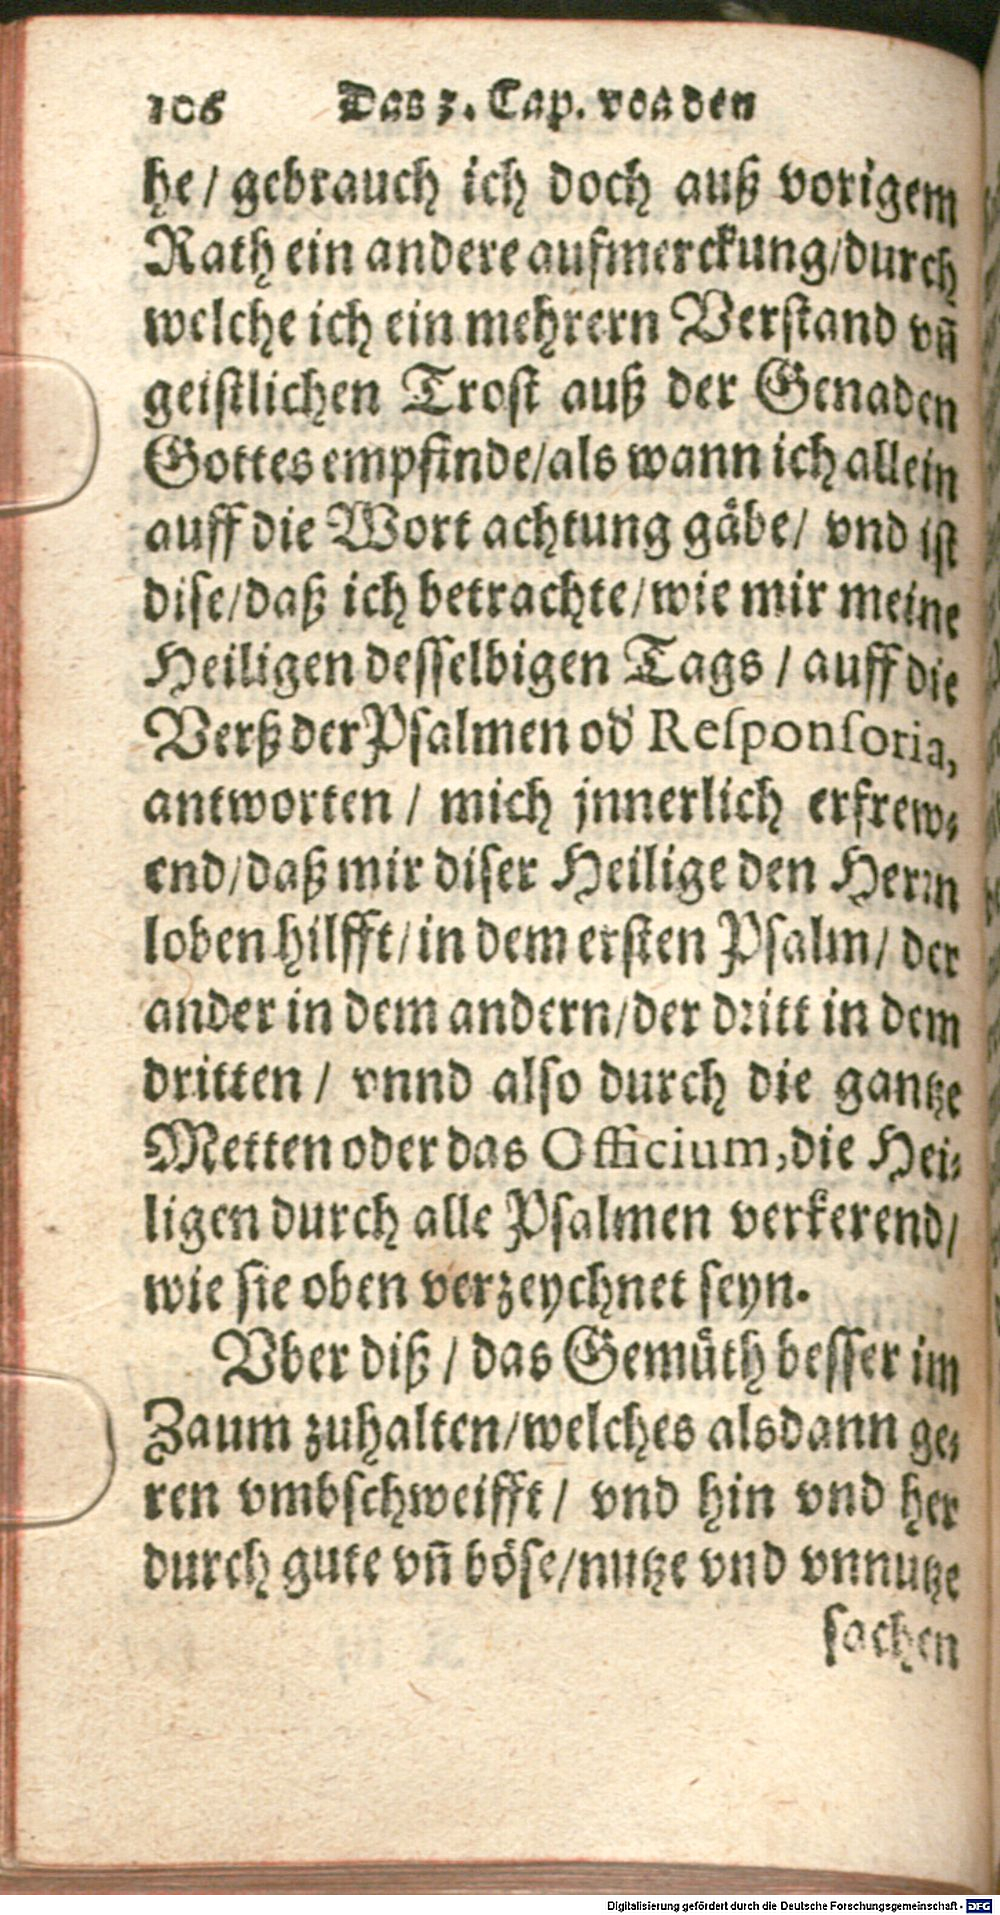 106 Das 3. Cap. von den
he/ gebrauch ich doch auß vorigem
Rath ein andere aufmerckung/durch
welche ich ein mehrern Verstand vñ
geistlichen Trost auß der Genaden
Gottes empfinde/als wann ich allein
auff die Wort achtung gäbe/ vnd ist
dise/daß ich betrachte/wie mir meine
Heiligen desselbigen Tags / auff die
Verß der Psalmen od' Responsoria,
antworten / mich jnnerlich erfrew⸗
end/daß mir diser Heilige den Herrn
loben hilfft/in dem ersten Psalm/ der
ander in dem andern/der dritt in dem
dritten / vnnd also durch die gantze
Metten oder das Officium, die Hei⸗
ligen durch alle Psalmen verkerend/
wie sie oben verzeychnet seyn.
Vber diß / das Gemüth besser im
Zaum zuhalten/welches alsdann ge⸗
ren vmbschweifft / vnd hin vnd her
durch gute vñ böse/nutze vnd vnnutze
sachen
Digitalisierung gefördert durch die Deutsche Forschungsgemeinschaft - DFG